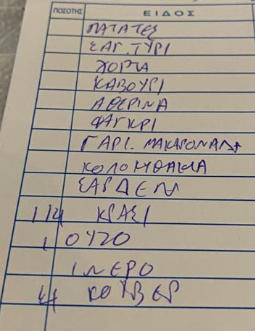 ΠΟΣΟΤΗΣ ΕΙΔΟΣ
ΠΑΤΑΤΕΣ
ΣΑΓ. ΤΥΡΙ
ΧΟΡΤΑ
ΚΑΒΟΥΡΙ
ΑΘΕΡΙΝΑ
ΦΑΓΚΡΙ
ΓΑΡΙ. ΜΑΚΑΡΟΝΑΔΑ
ΣΑΡΔΕΛ
1/4 ΚΡΑΣΙ
1 ΟΥΖΟ
1 ΝΕΡΟ
ΚΟΥΒΕΡ